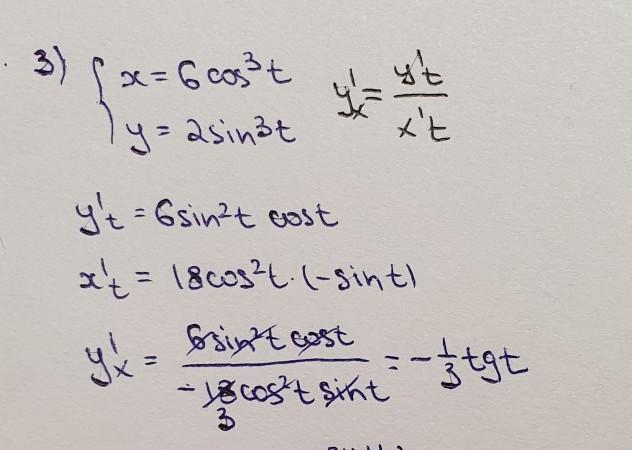 3) { x = 6cos³t
y = 2sin³t
y'x = y't / x't
y't = 6sin²t cost
x't = 18cos²t·(-sint)
y'x = 6sin²t cost / -18cos²t sint = -1/3 tgt
3